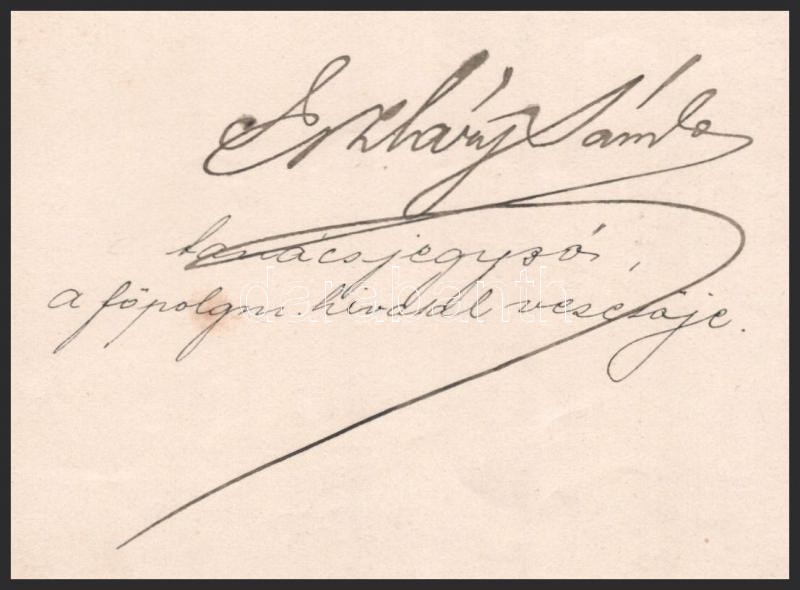 Eszláry Sándor
tanácsjegyző,
a főpolgm. hivatal vezetője.
darabanth